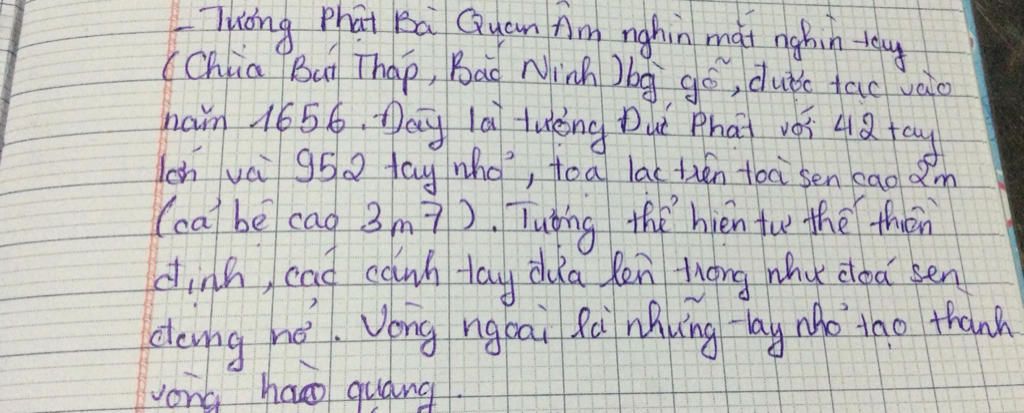 - Tượng Phật Bà Quan Âm nghìn mắt nghìn tay
(Chùa Bút Tháp, Bắc Ninh) bg gỗ, được tạc vào
năm 1656. Đây là tượng Đức Phật với 42 tay
lớn và 952 tay nhỏ, toạ lạc trên toà sen cao 2m
(cả bệ cao 3m7). Tượng thể hiện tư thế thiền
định, các cánh tay đưa lên trông như đoá sen
đang nở. Vòng ngoài là những tay nhỏ tạo thành
vòng hào quang.